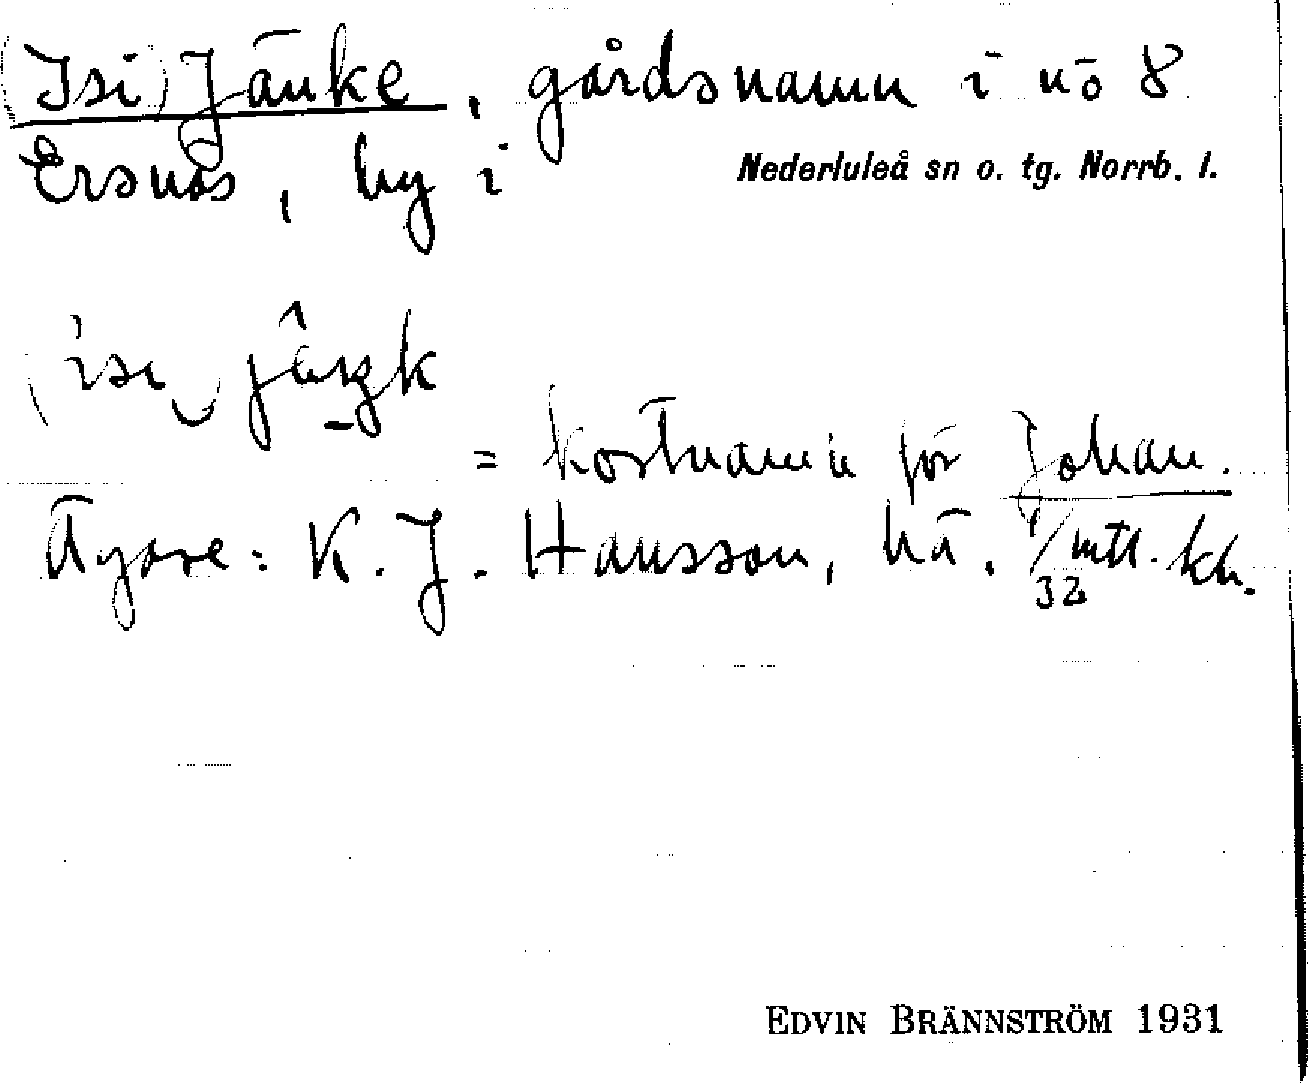 (Isi) Jänke, gårdsnamn i nö 8
Ersnäs, by i Nederluleå sn o. tg. Norrb. l.
= kortnamn för Johan.
Ägare: K. J. Hansson, hä. 1/32 mtl. kh.
EDVIN BRÄNNSTRÖM 1931